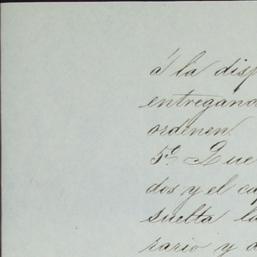 á la disp
entregand
ordenen.
5º. Que
dos y el ca
suelta la
rario y a